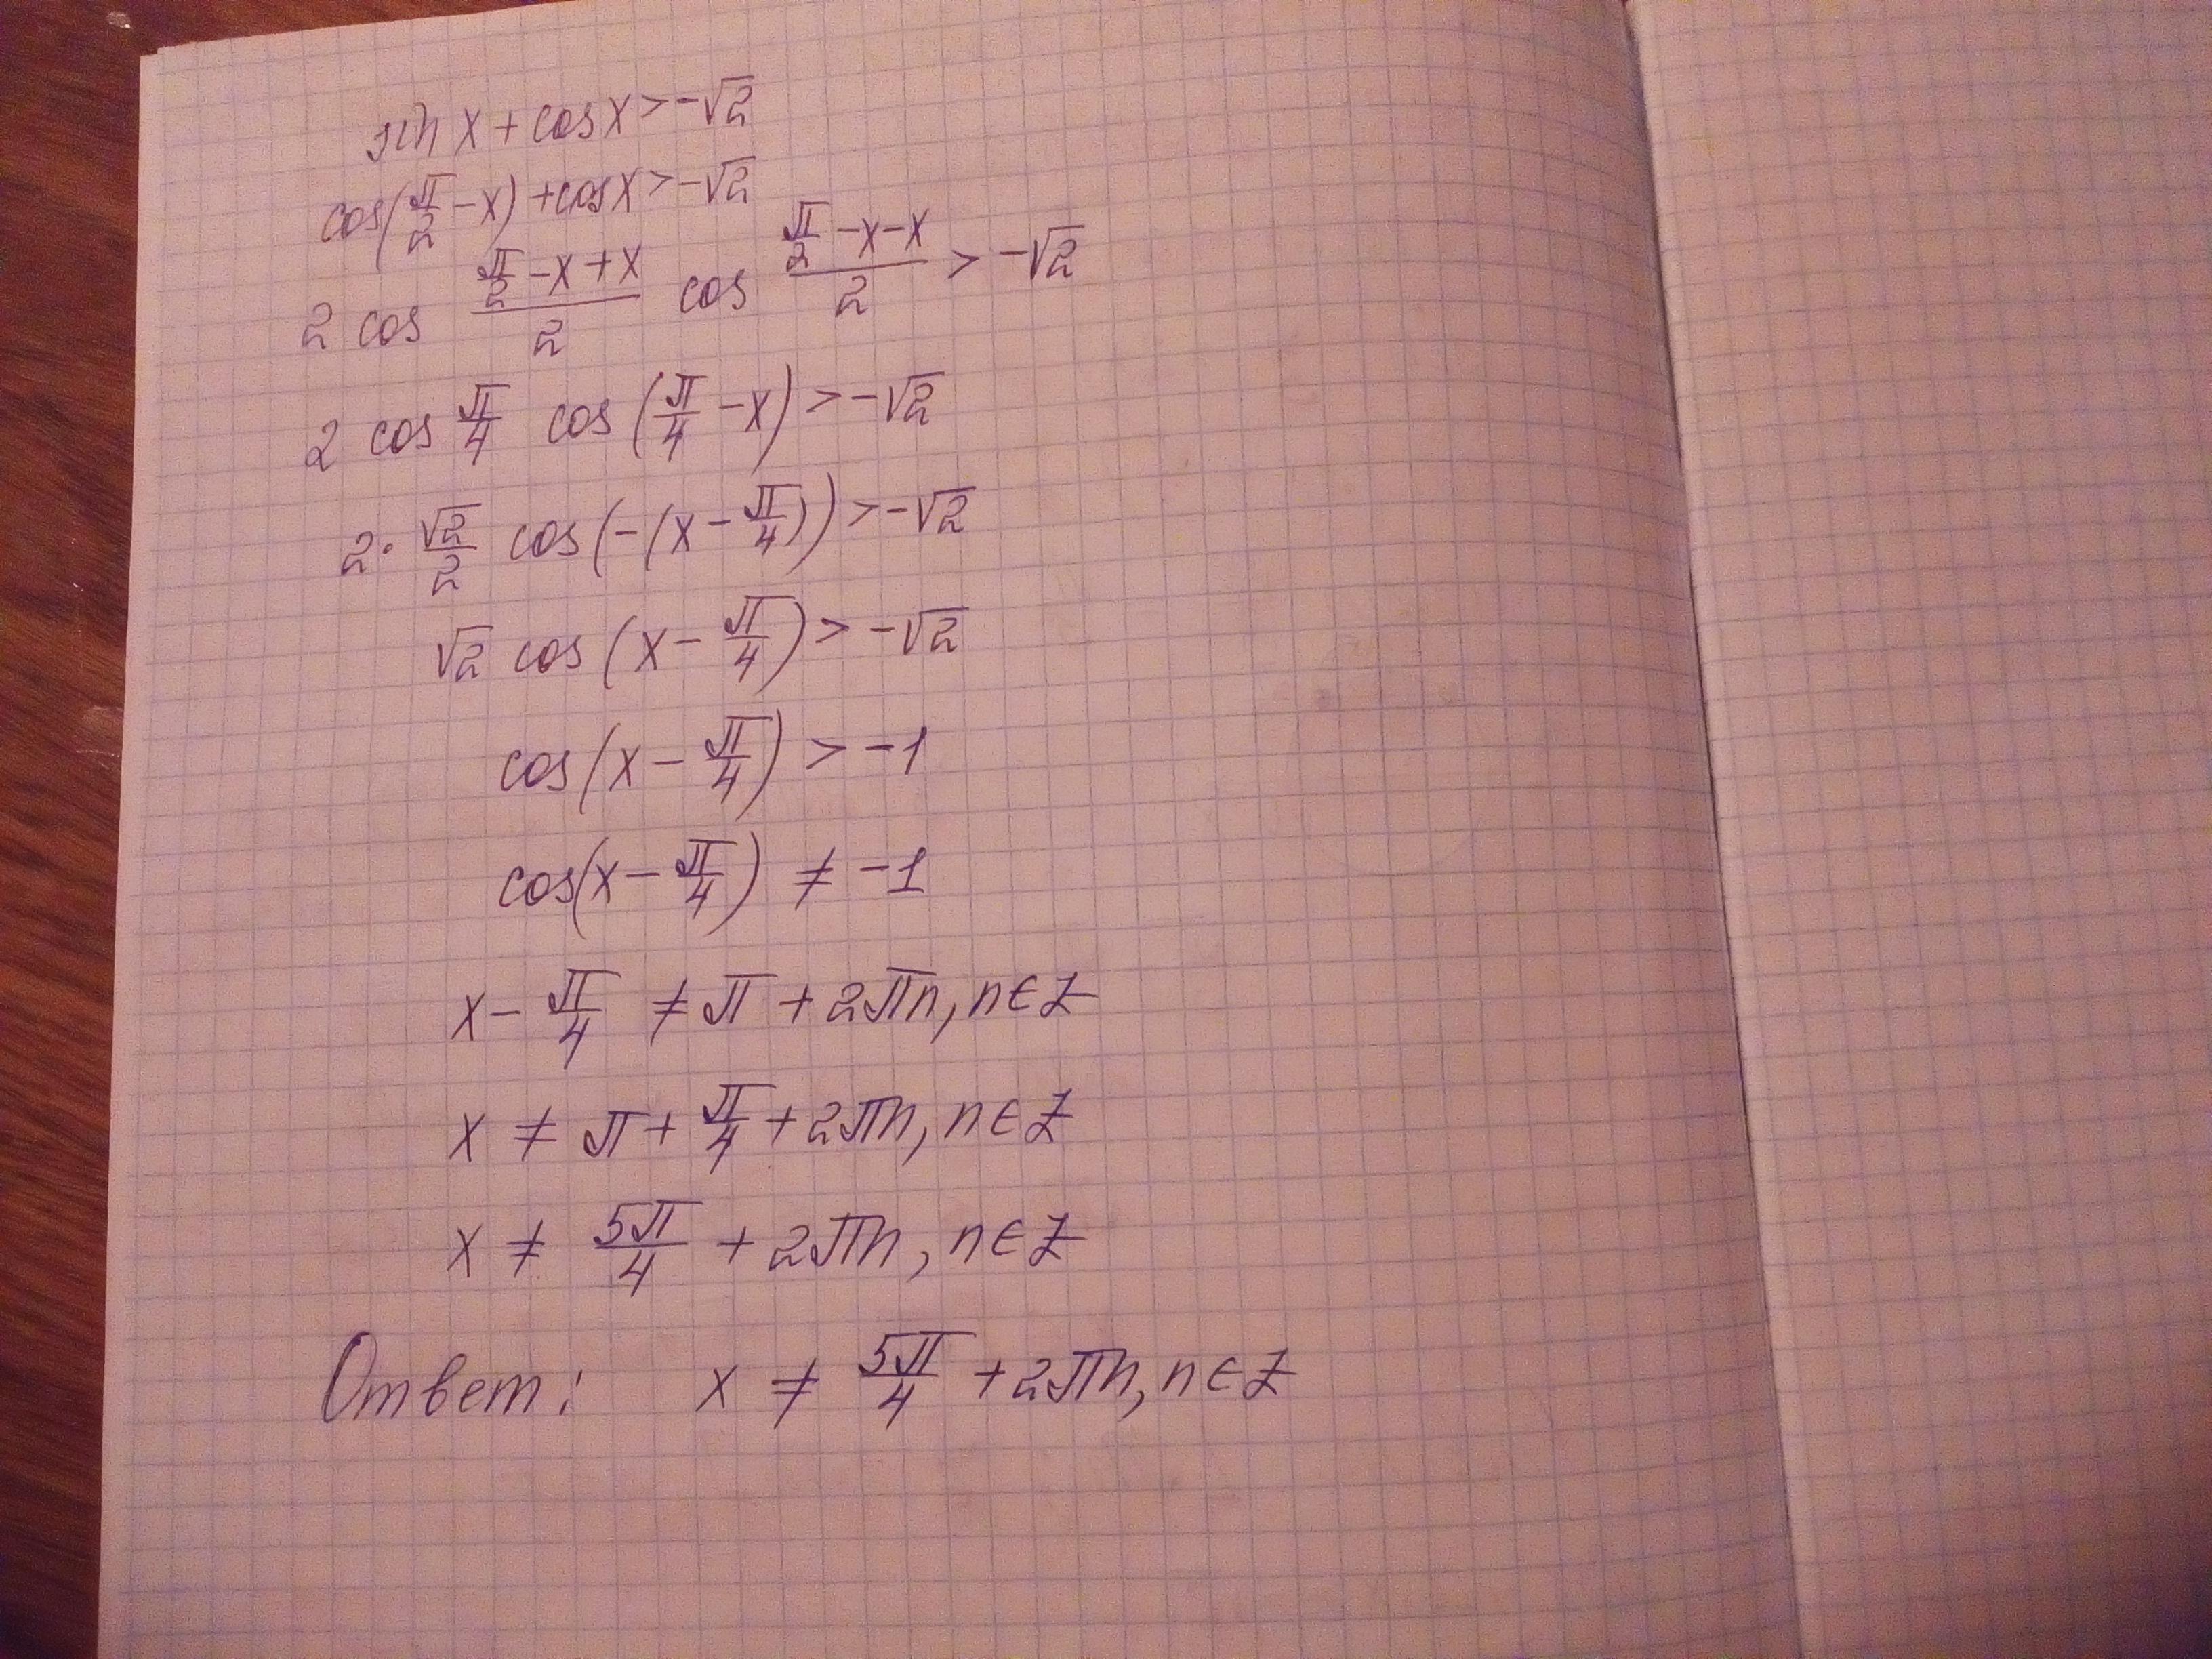 sin x + cos x > -√2
cos(π/2 - x) + cos x > -√2
2 cos (π/2 - x + x)/2 cos (π/2 - x - x)/2 > -√2
2 cos π/4 cos (π/4 - x) > -√2
2 · √2/2 cos(-(x - π/4)) > -√2
√2 cos (x - π/4) > -√2
cos(x - π/4) > -1
cos(x - π/4) ≠ -1
x - π/4 ≠ π + 2πn, n ∈ Z
x ≠ π + π/4 + 2πn, n ∈ Z
x ≠ 5π/4 + 2πn, n ∈ Z
Ответ: x ≠ 5π/4 + 2πn, n ∈ Z